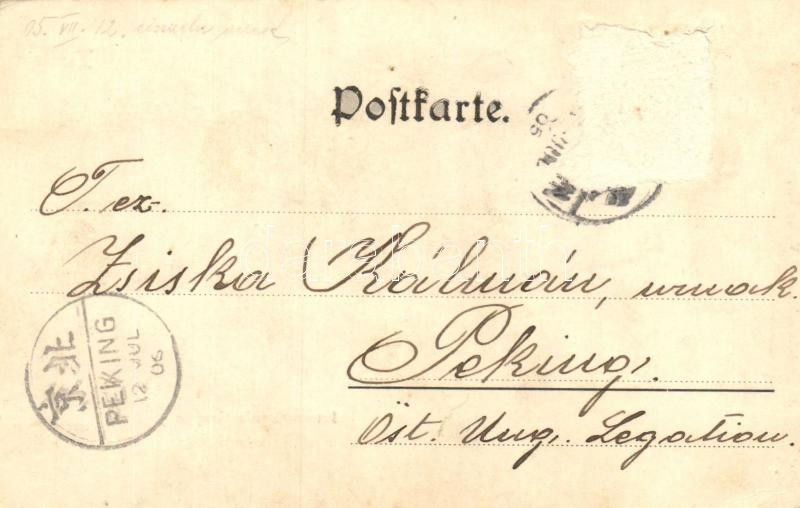 05. VII. 12.
Postkarte.
JUL
05
Tez.
Zsiska Kálmán, urnak.
Peking.
Öst. Ung. Legation.
北京
PEKING
12 JUL
06